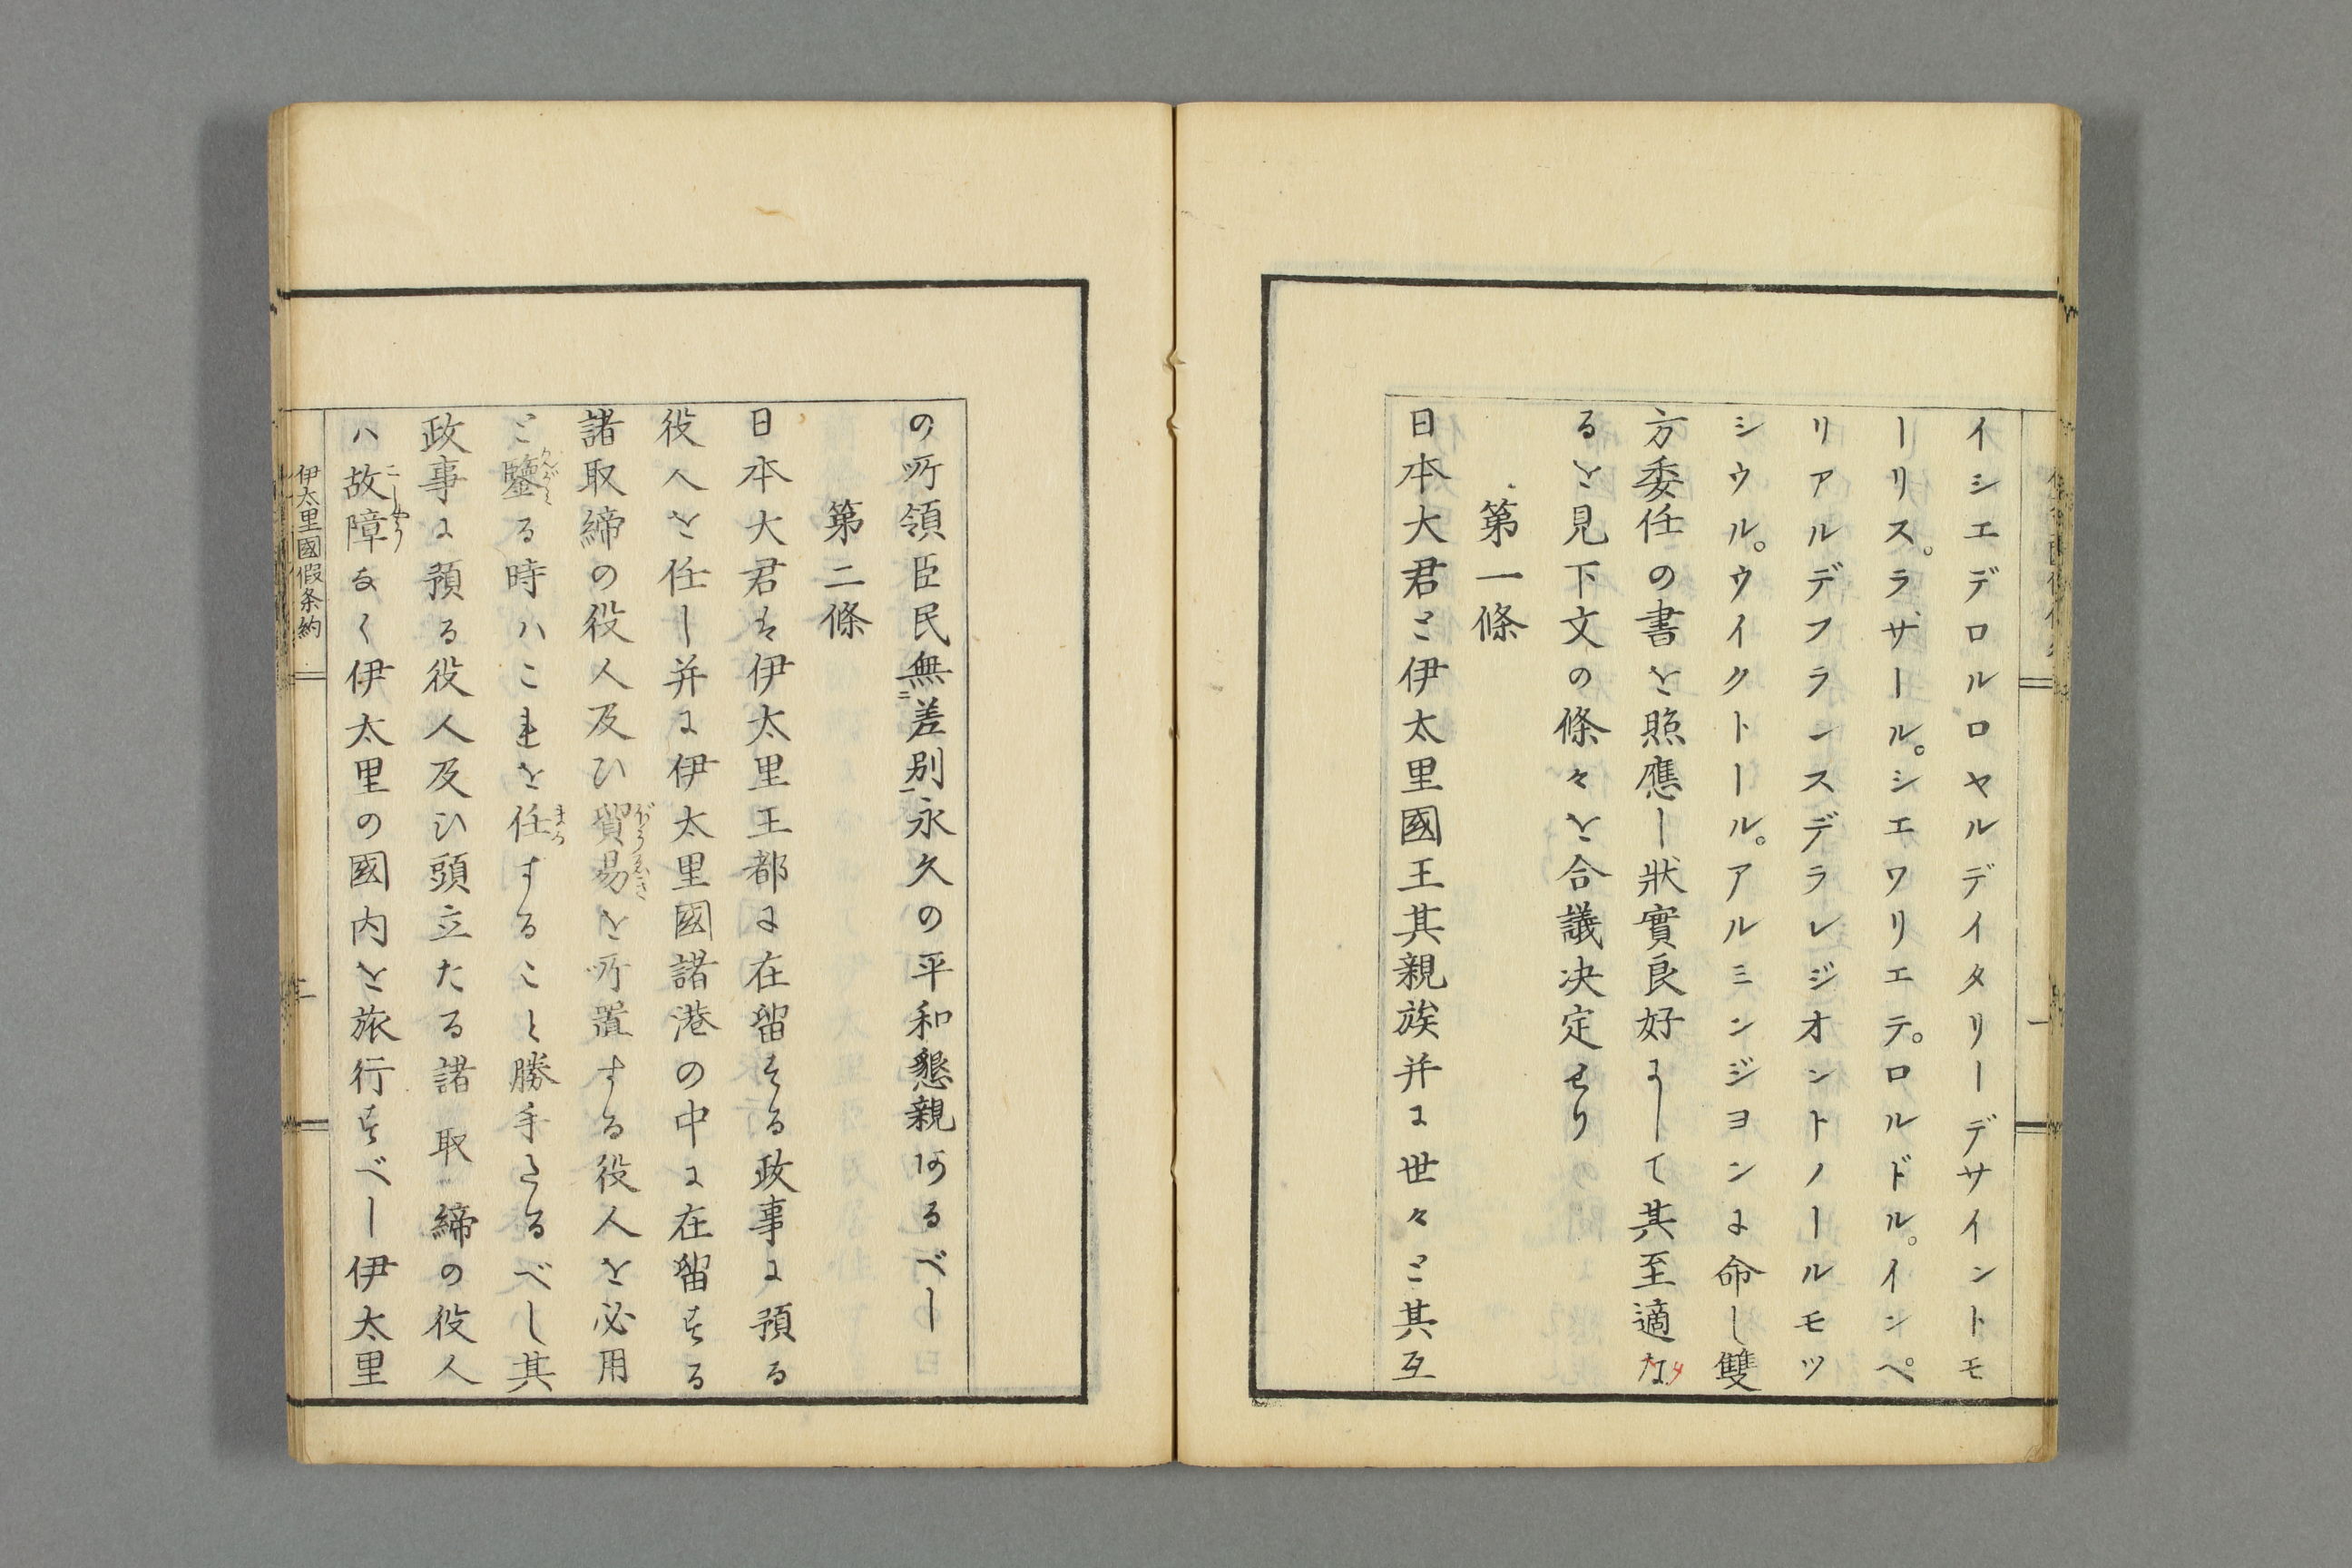 イシエデロルロヤルデイタリーデサイントモ
ーリス。ラザール。シエワリエテ。ロルドル。インペ
リアルデフランスデラレジオントノールモツ
シウル。ウイクトール。アルミンジヨンに命し雙
方委任の書を照應し狀實良好にして其至適な
るを見下文の條々を合議决定せり
第一條
日本大君と伊太里國王其親族并に世々と其互
一
の所領臣民無ニ差別一永久の平和懇親あるべし
第二條
日本大君は伊太里王都に在留する政事に預る
役人を任し并に伊太里國諸港の中に在留する
諸取締の役人及ひ貿易を所置する役人を必用
ぼうゑき
と鑒る時ハこれを任することを勝手たるべし其
かんがみ
まか
政事に預る役人及ひ頭立たる諸取締の役人
ハ故障なく伊太里の國内を旅行すべし伊太里
こしやう
伊太里國假条約
二